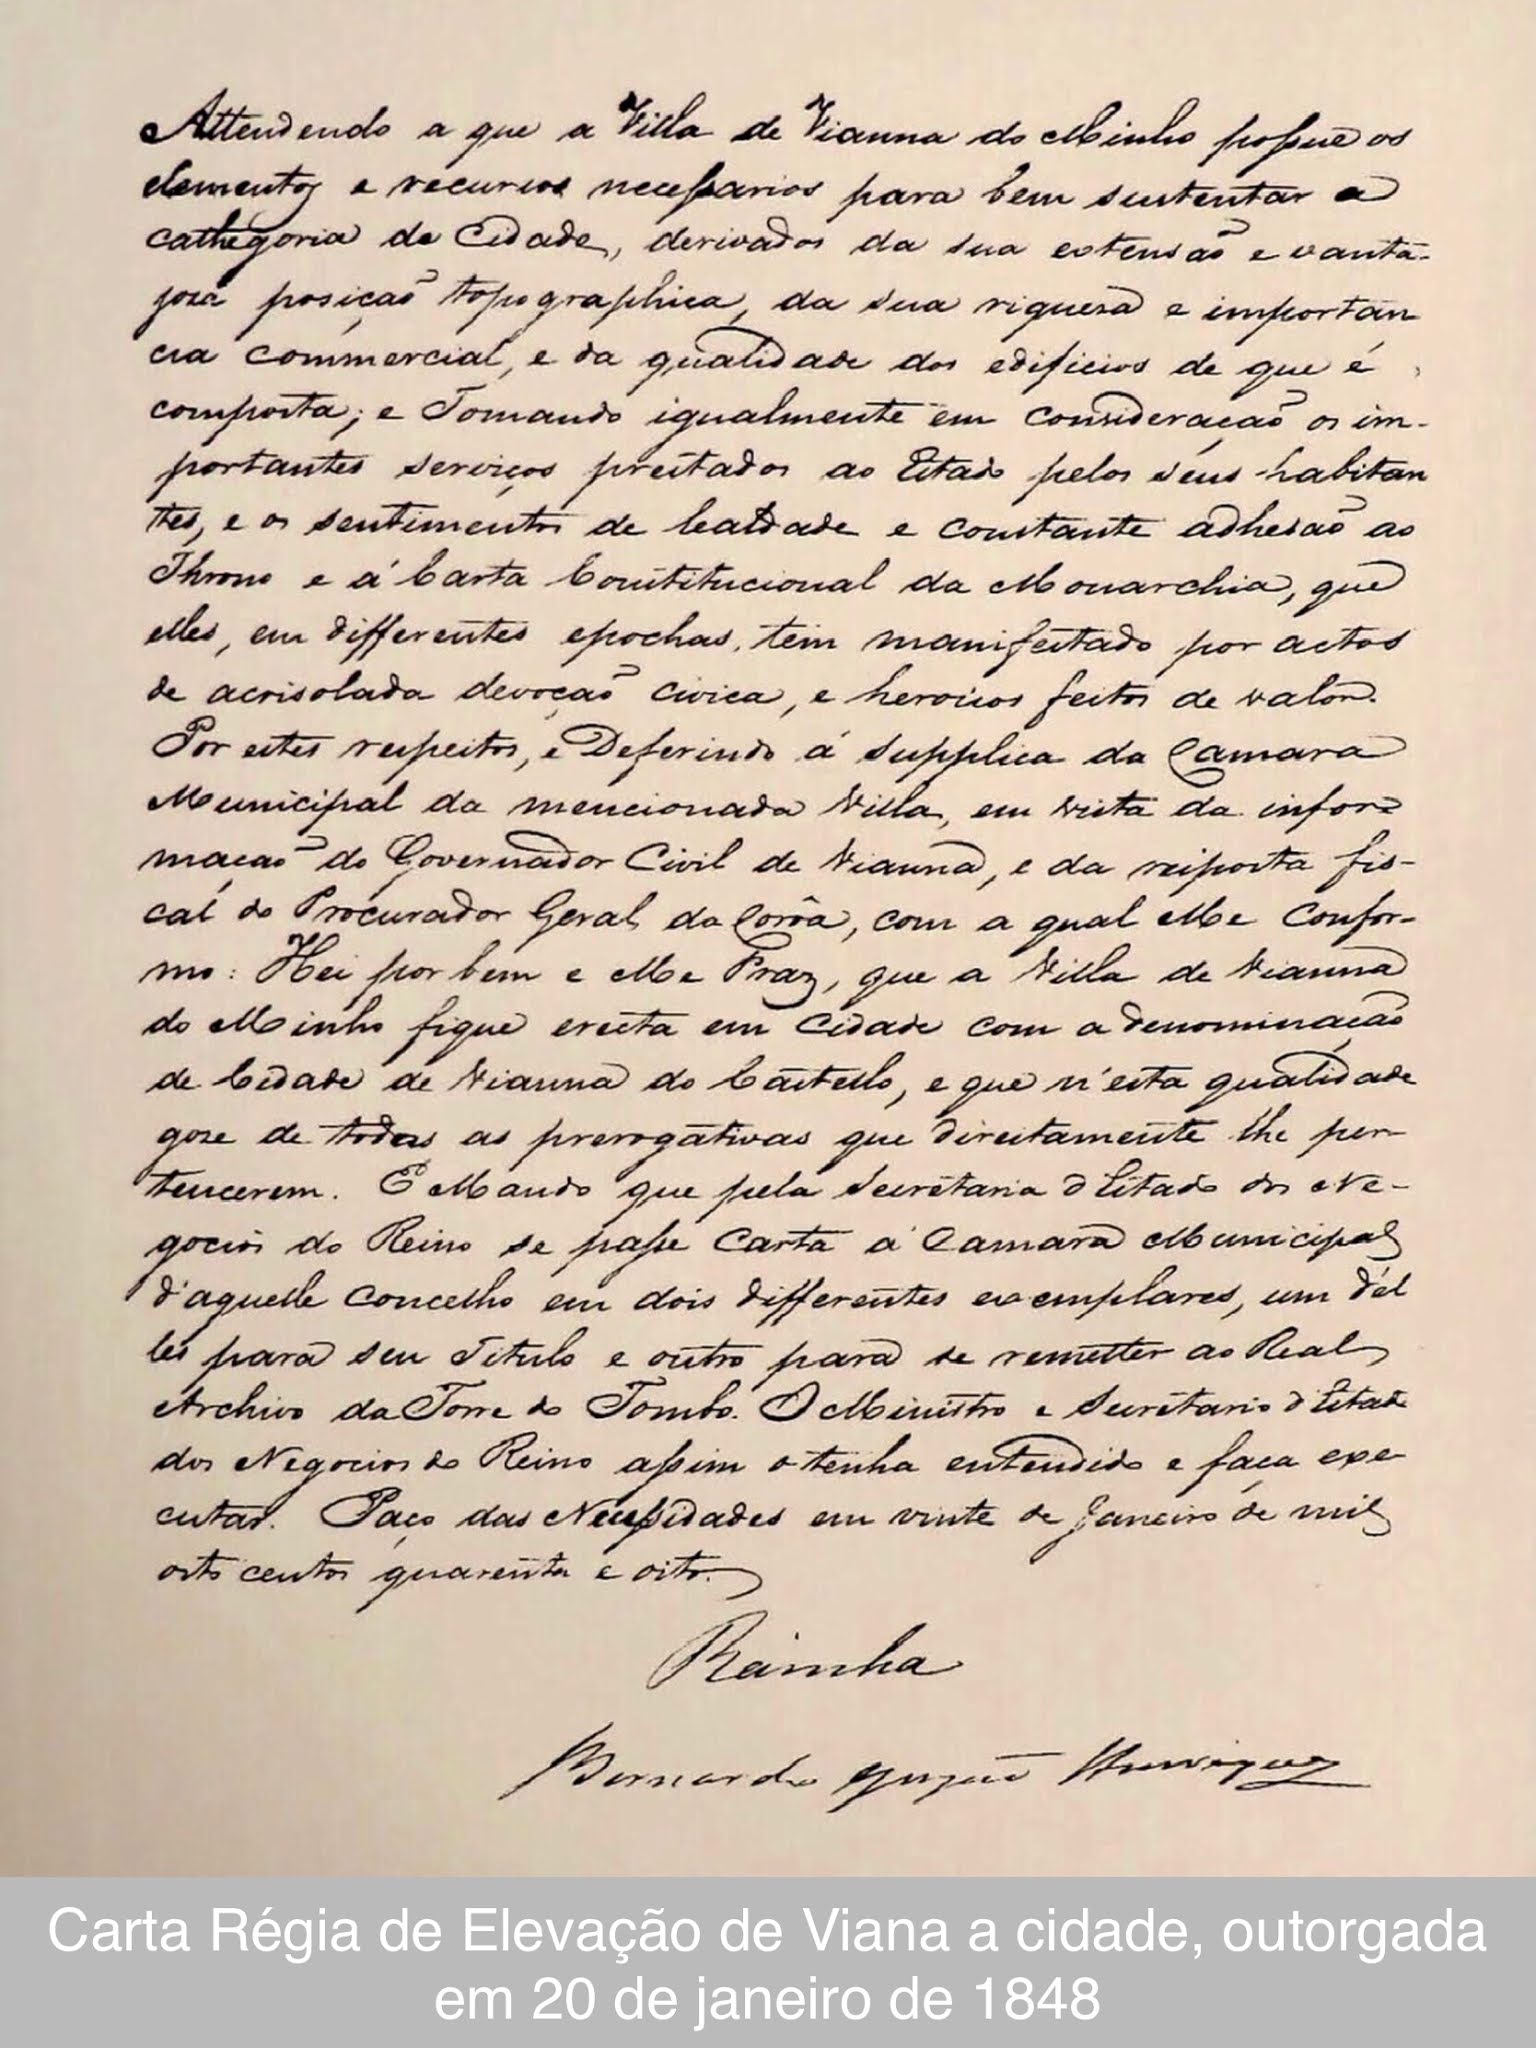 Attendendo a que a Villa de Vianna do Minho possue os
elementos e recursos necessarios para bem sustentar a
cathegoria de Cidade, derivados da sua extensão e vanta-
josa posição topographica, da sua riquesa e importan
cia commercial, e da qualidade dos edificios de que é
composta; e Tomando igualmente em consideração os im-
portantes serviços prestados ao Estado pelos seus habitan
tes, e os sentimentos de lealdade e constante adhesão ao
Throno e á Carta Constitucional da Monarchia, que
elles, em differentes epochas, tem manifestado por actos
de acrisolada devoção civica, e heroicos feitos de valor.
Por estes respeitos, e Deferindo á supplica da Camara
Municipal da mencionada Villa, em vista da infor=
mação do Governador Civil de Vianna, e da resposta fis-
cal do Procurador Geral da Corôa, com a qual Me Confor-
mo: Hei por bem e Me Praz, que a Villa de Vianna
do Minho fique erecta em Cidade com a denominação
de Cidade de Vianna do Castello, e que n'esta qualidade
gose de todas as prerogativas que direitamente lhe per-
tencerem. E Mando que pela Secretaria d'Estado dos Ne-
gocios do Reino se passe Carta á Camara Municipal
d'aquelle Concelho em dois differentes exemplares, um d'el
les para seu Titulo e outro para se remetter ao Real
Archivo da Torre do Tombo. O Ministro e Secretario d'Estado
dos Negocios do Reino assim o tenha entendido e faça exe-
cutar. Paço das Necessidades em vinte de Janeiro de mil
oito centos quarenta e oito.
Rainha
Bernardo Gorjão Henriques
Carta Régia de Elevação de Viana a cidade, outorgada
em 20 de janeiro de 1848